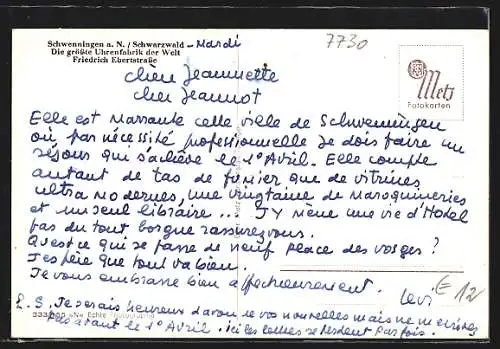 Schwenningen a. N. / Schwarzwald - Mardi
Die größte Uhrenfabrik der Welt
Friedrich Ebertstraße
7730
Metz
Fotokarten
Chère Jeannette
cher Jeannot
Elle est Marrante cette ville de Schwenningen
où par nécessité professionnelle je dois faire un
séjour qui s'achève le 1° Avril. Elle compte
autant de tas de fumier que de vitrines
ultra modernes, une vingtaine de Maroquineries
et un seul libraire... J'y mène une vie d'Hotel
pas du tout borgne rassurez vous.
Qu'est ce qui se passe de neuf place des vosges?
J'espère que tout va bien.
Je vous embrasse bien affectueusement.
Levi
E 12
P.S. Je serais heureux d'avoir de vos nouvelles mais ne m'écrivez
pas avant le 1° Avril. Ici les lettres se perdent parfois.
Echte